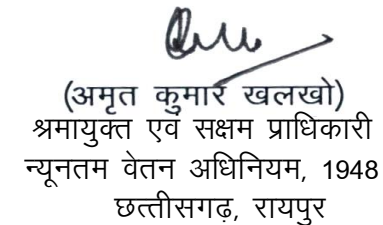 (अमृत कुमार खलखो)
श्रमायुक्त एवं सक्षम प्राधिकारी
न्यूनतम वेतन अधिनियम, 1948
छत्तीसगढ़, रायपुर